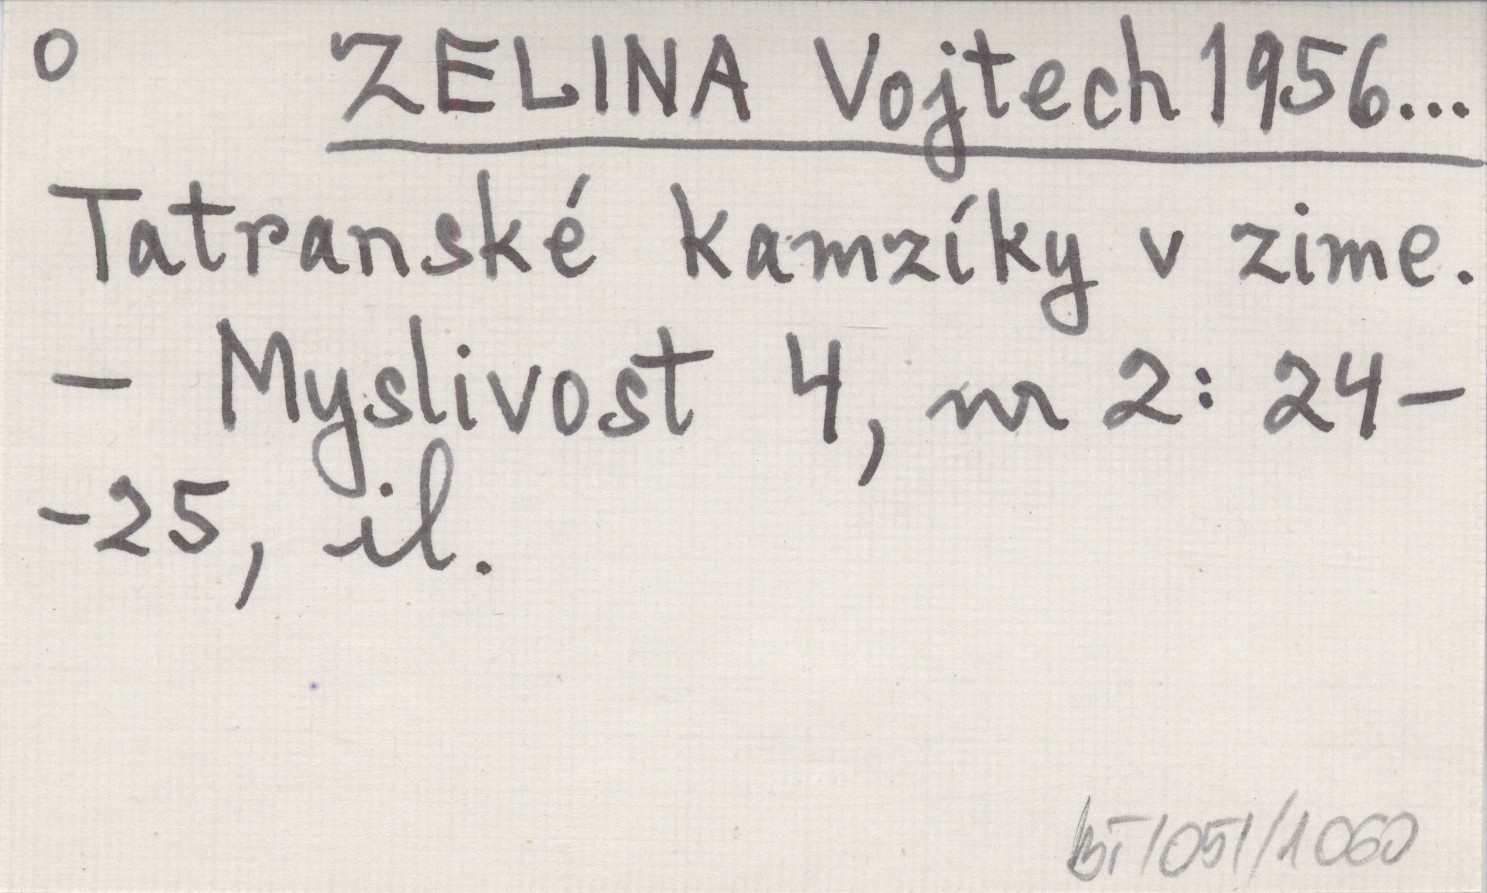 O ZELINA Vojtech 1956...
Tatranské kamzíky v zime.
- Myslivost 4, nr 2: 24-
-25, il.
BT/051/1060